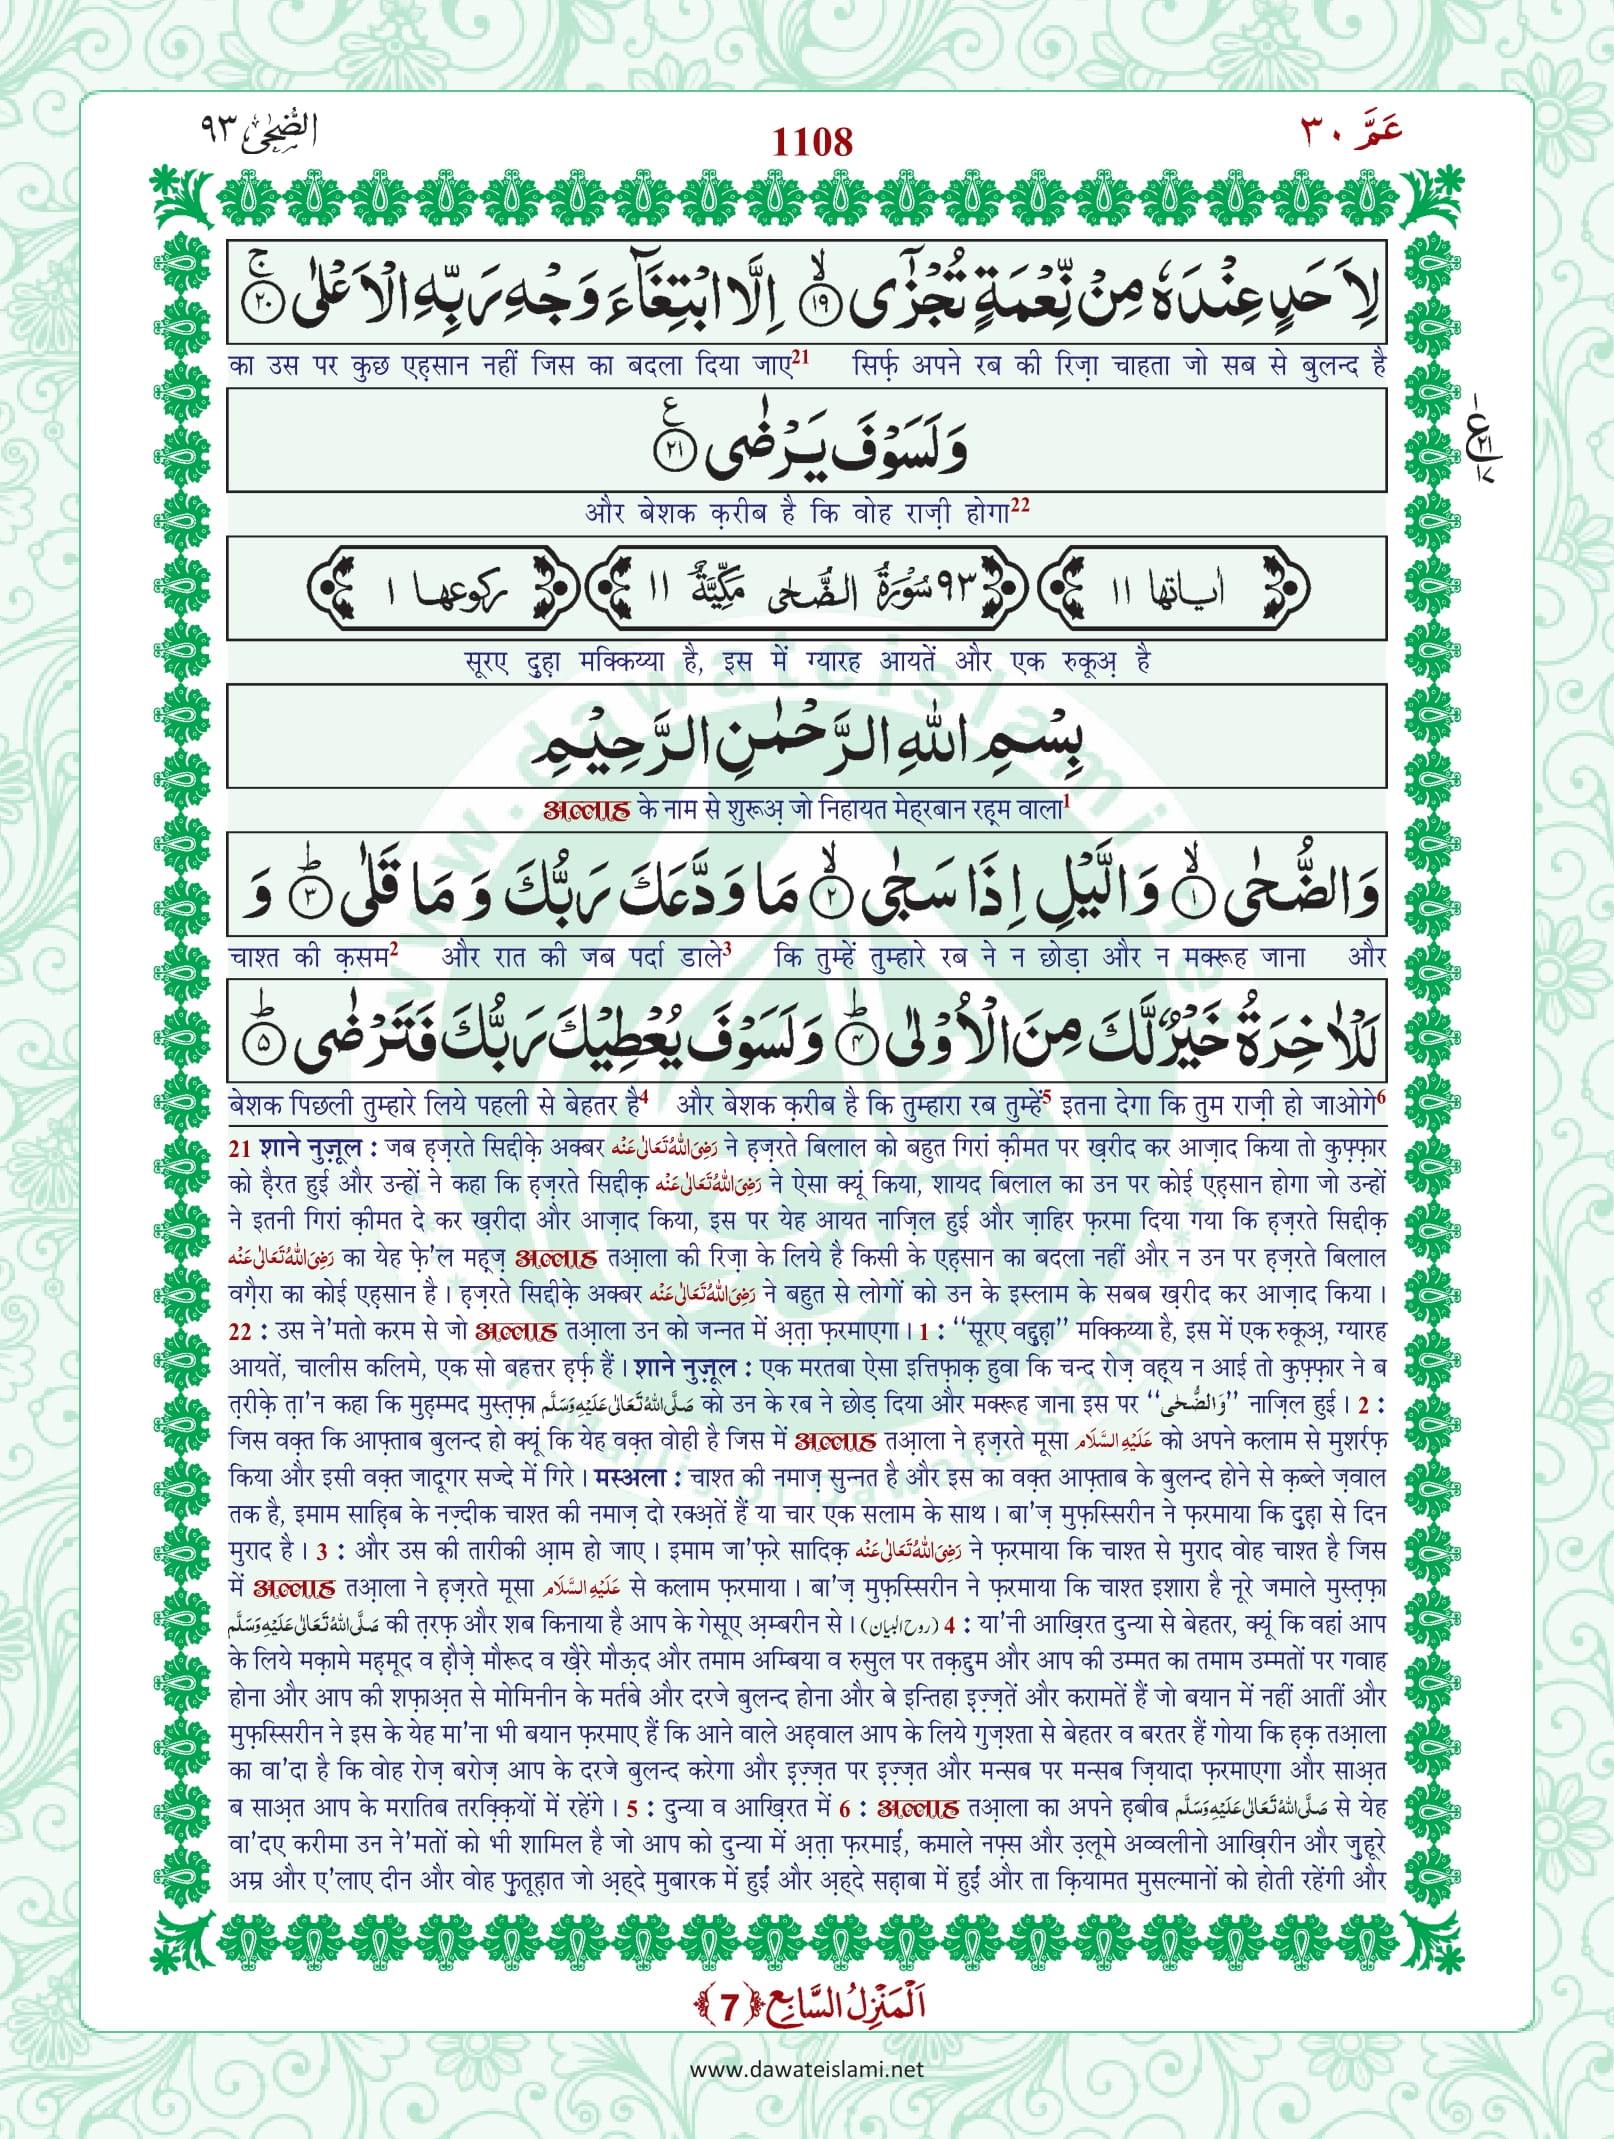 عَمَّ ٣٠
1108
الضُّحٰى ٩٣
لِاَحَدٍ عِنْدَهٗ مِنْ نِّعْمَةٍ تُجْزٰۤى ۙ﴿۱۹﴾ اِلَّا ابْتِغَآءَ وَجْهِ رَبِّهِ الْاَعْلٰى ۚ﴿۲۰﴾
का उस पर कुछ एह़सान नहीं जिस का बदला दिया जाए21 सिर्फ़ अपने रब की रिज़ा चाहता जो सब से बुलन्द है
وَلَسَوْفَ یَرْضٰى ﴿۲۱﴾ ع
और बेशक क़रीब है कि वोह राज़ी होगा22
اٰیاتها ١١ ٩٣ سُوْرَةُ الضُّحٰى مَكِّیَّةٌ ١١ ركوعها ١
सूरए दुह़ा मक्किय्या है, इस में ग्यारह आयतें और एक रुकूअ़ है
بِسْمِ اللّٰهِ الرَّحْمٰنِ الرَّحِیْمِ
अल्लाह के नाम से शुरूअ़ जो निहायत मेह्‌रबान रह़्म वाला1
وَالضُّحٰى ۙ﴿۱﴾ وَالَّیْلِ اِذَا سَجٰى ۙ﴿۲﴾ مَا وَدَّعَكَ رَبُّكَ وَمَا قَلٰى ؕ﴿۳﴾ وَ
चाश्त की क़सम2 और रात की जब पर्दा डाले3 कि तुम्हें तुम्हारे रब ने न छोड़ा और न मक्रूह जाना और
لَلْاٰخِرَةُ خَیْرٌ لَّكَ مِنَ الْاُوْلٰى ؕ﴿۴﴾ وَلَسَوْفَ یُعْطِیْكَ رَبُّكَ فَتَرْضٰى ؕ﴿۵﴾
बेशक पिछली तुम्हारे लिये पहली से बेहतर है4 और बेशक क़रीब है कि तुम्हारा रब तुम्हें5 इतना देगा कि तुम राज़ी हो जाओगे6
21 शाने नुज़ूल : जब ह़ज़रते सिद्दीक़े अक्बर رَضِیَ اللّٰهُ تَعَالٰی عَنْه ने ह़ज़रते बिलाल को बहुत गिरां क़ीमत पर ख़रीद कर आज़ाद किया तो कुफ़्फ़ार
को ह़ैरत हुई और उन्हों ने कहा कि ह़ज़रते सिद्दीक़ رَضِیَ اللّٰهُ تَعَالٰی عَنْه ने ऐसा क्यूं किया, शायद बिलाल का उन पर कोई एह़सान होगा जो उन्हों
ने इतनी गिरां क़ीमत दे कर ख़रीदा और आज़ाद किया, इस पर येह आयत नाज़िल हुई और ज़ाहिर फ़रमा दिया गया कि ह़ज़रते सिद्दीक़
رَضِیَ اللّٰهُ تَعَالٰی عَنْه का येह फ़े'ल मह़्ज़ अल्लाह तआ़ला की रिज़ा के लिये है किसी के एह़सान का बदला नहीं और न उन पर ह़ज़रते बिलाल
वग़ैरा का कोई एह़सान है । ह़ज़रते सिद्दीक़े अक्बर رَضِیَ اللّٰهُ تَعَالٰی عَنْه ने बहुत से लोगों को उन के इस्लाम के सबब ख़रीद कर आज़ाद किया ।
22 : उस ने'मतो करम से जो अल्लाह तआ़ला उन को जन्नत में अ़त़ा फ़रमाएगा । 1 : ‘‘सूरए वद्दुह़ा’’ मक्किय्या है, इस में एक रुकूअ़, ग्यारह
आयतें, चालीस कलिमे, एक सो बहत्तर ह़र्फ़ हैं । शाने नुज़ूल : एक मरतबा ऐसा इत्तिफ़ाक़ हुवा कि चन्द रोज़ वह़्य न आई तो कुफ़्फ़ार ने ब
त़रीक़े ता'न कहा कि मुह़म्मद मुस्त़फ़ा صَلَّی اللّٰهُ تَعَالٰی عَلَیْهِ وَسَلَّم को उन के रब ने छोड़ दिया और मक्रूह जाना इस पर ‘‘وَالضُّحٰى’’ नाज़िल हुई । 2 :
जिस वक़्त कि आफ़्ताब बुलन्द हो क्यूं कि येह वक़्त वोही है जिस में अल्लाह तआ़ला ने ह़ज़रते मूसा عَلَیْهِ السَّلَام को अपने कलाम से मुशर्रफ़
किया और इसी वक़्त जादूगर सज्दे में गिरे । मस्अला : चाश्त की नमाज़ सुन्नत है और इस का वक़्त आफ़्ताब के बुलन्द होने से क़ब्ले ज़वाल
तक है, इमाम साहिब के नज़्दीक चाश्त की नमाज़ दो रक्अ़तें हैं या चार एक सलाम के साथ । बा'ज़ मुफ़स्सिरीन ने फ़रमाया कि दुह़ा से दिन
मुराद है । 3 : और उस की तारीकी आ़म हो जाए । इमाम जा'फ़रे सादिक़ رَضِیَ اللّٰهُ تَعَالٰی عَنْه ने फ़रमाया कि चाश्त से मुराद वोह चाश्त है जिस
में अल्लाह तआ़ला ने ह़ज़रते मूसा عَلَیْهِ السَّلَام से कलाम फ़रमाया । बा'ज़ मुफ़स्सिरीन ने फ़रमाया कि चाश्त इशारा है नूरे जमाले मुस्त़फ़ा
صَلَّی اللّٰهُ تَعَالٰی عَلَیْهِ وَسَلَّم की त़रफ़ और शब किनाया है आप के गेसूए अ़म्बरीन से । (روح البیان) 4 : या'नी आख़िरत दुन्या से बेहतर, क्यूं कि वहां आप
के लिये मक़ामे मह़मूद व ह़ौज़े मौरूद व ख़ैरे मौऊ़द और तमाम अम्बिया व रुसुल पर तक़द्दुम और आप की उम्मत का तमाम उम्मतों पर गवाह
होना और आप की शफ़ाअ़त से मोमिनीन के मर्तबे और दरजे बुलन्द होना और बे इन्तिहा इ़ज़्ज़तें और करामतें हैं जो बयान में नहीं आतीं और
मुफ़स्सिरीन ने इस के येह मा'ना भी बयान फ़रमाए हैं कि आने वाले अह़वाल आप के लिये गुज़श्ता से बेहतर व बरतर हैं गोया कि ह़क़ तआ़ला
का वा'दा है कि वोह रोज़ बरोज़ आप के दरजे बुलन्द करेगा और इ़ज़्ज़त पर इ़ज़्ज़त और मन्सब पर मन्सब ज़ियादा फ़रमाएगा और साअ़त
ब साअ़त आप के मरातिब तरक़्क़ियों में रहेंगे । 5 : दुन्या व आख़िरत में 6 : अल्लाह तआ़ला का अपने ह़बीब صَلَّی اللّٰهُ تَعَالٰی عَلَیْهِ وَسَلَّم से येह
वा'दए करीमा उन ने'मतों को भी शामिल है जो आप को दुन्या में अ़त़ा फ़रमाईं, कमाले नफ़्स और उ़लूमे अव्वलीनो आख़िरीन और ज़ुहूरे
अम्र और ए'लाए दीन और वोह फ़ुतूह़ात जो अ़ह्‌दे मुबारक में हुईं और अ़ह्‌दे सह़ाबा में हुईं और ता क़ियामत मुसल्मानों को होती रहेंगी और
اَلْمَنْزِلُ السَّابِع ﴿7﴾
www.dawateislami.net